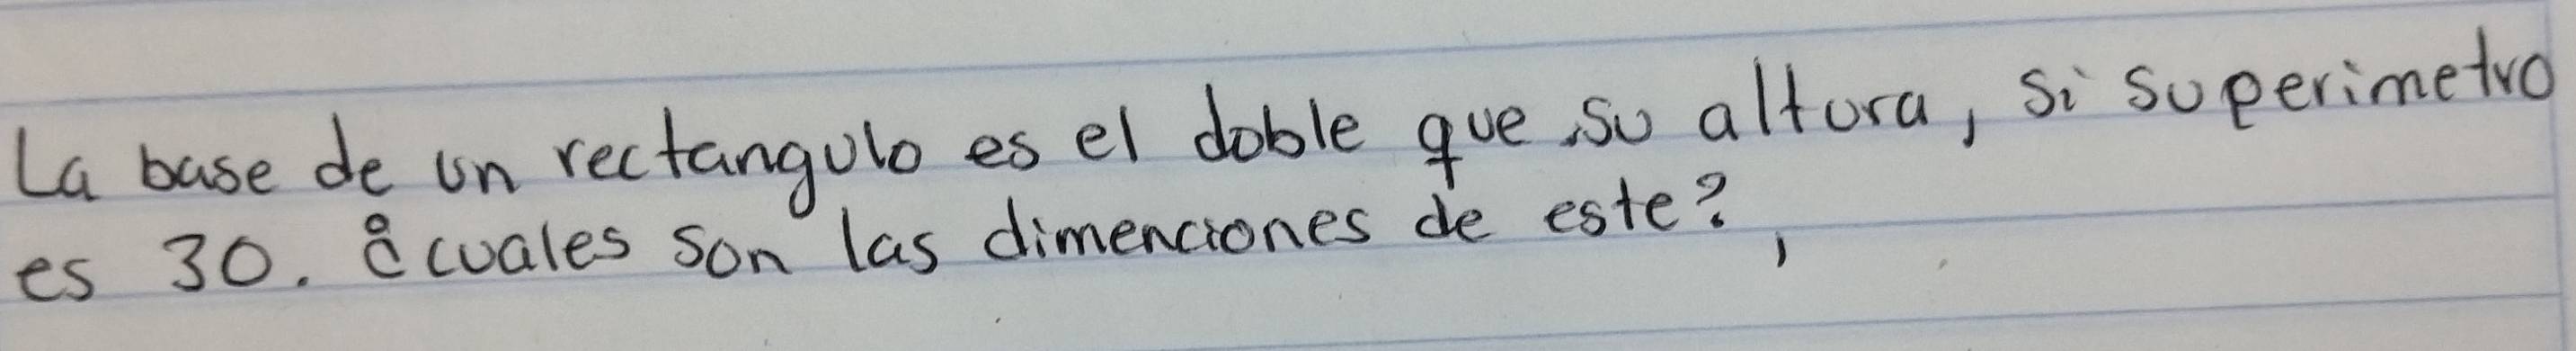 La base de un rectangulo es el doble que su altura, si su perimetro
es 30. ¿cuales son las dimenciones de este?,